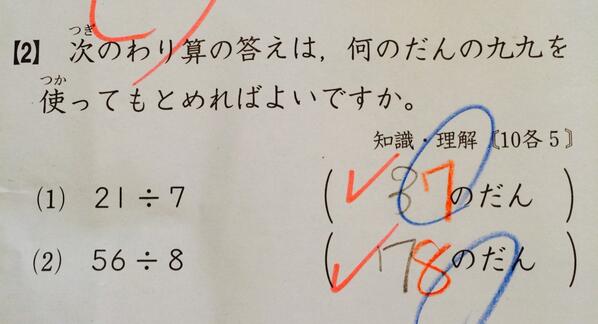 【2】 次のわり算の答えは，何のだんの九九を
使ってもとめればよいですか。
知識・理解〔10各5〕
(1) 21÷7 ( 3 7のだん )
(2) 56÷8 ( 7 8のだん )